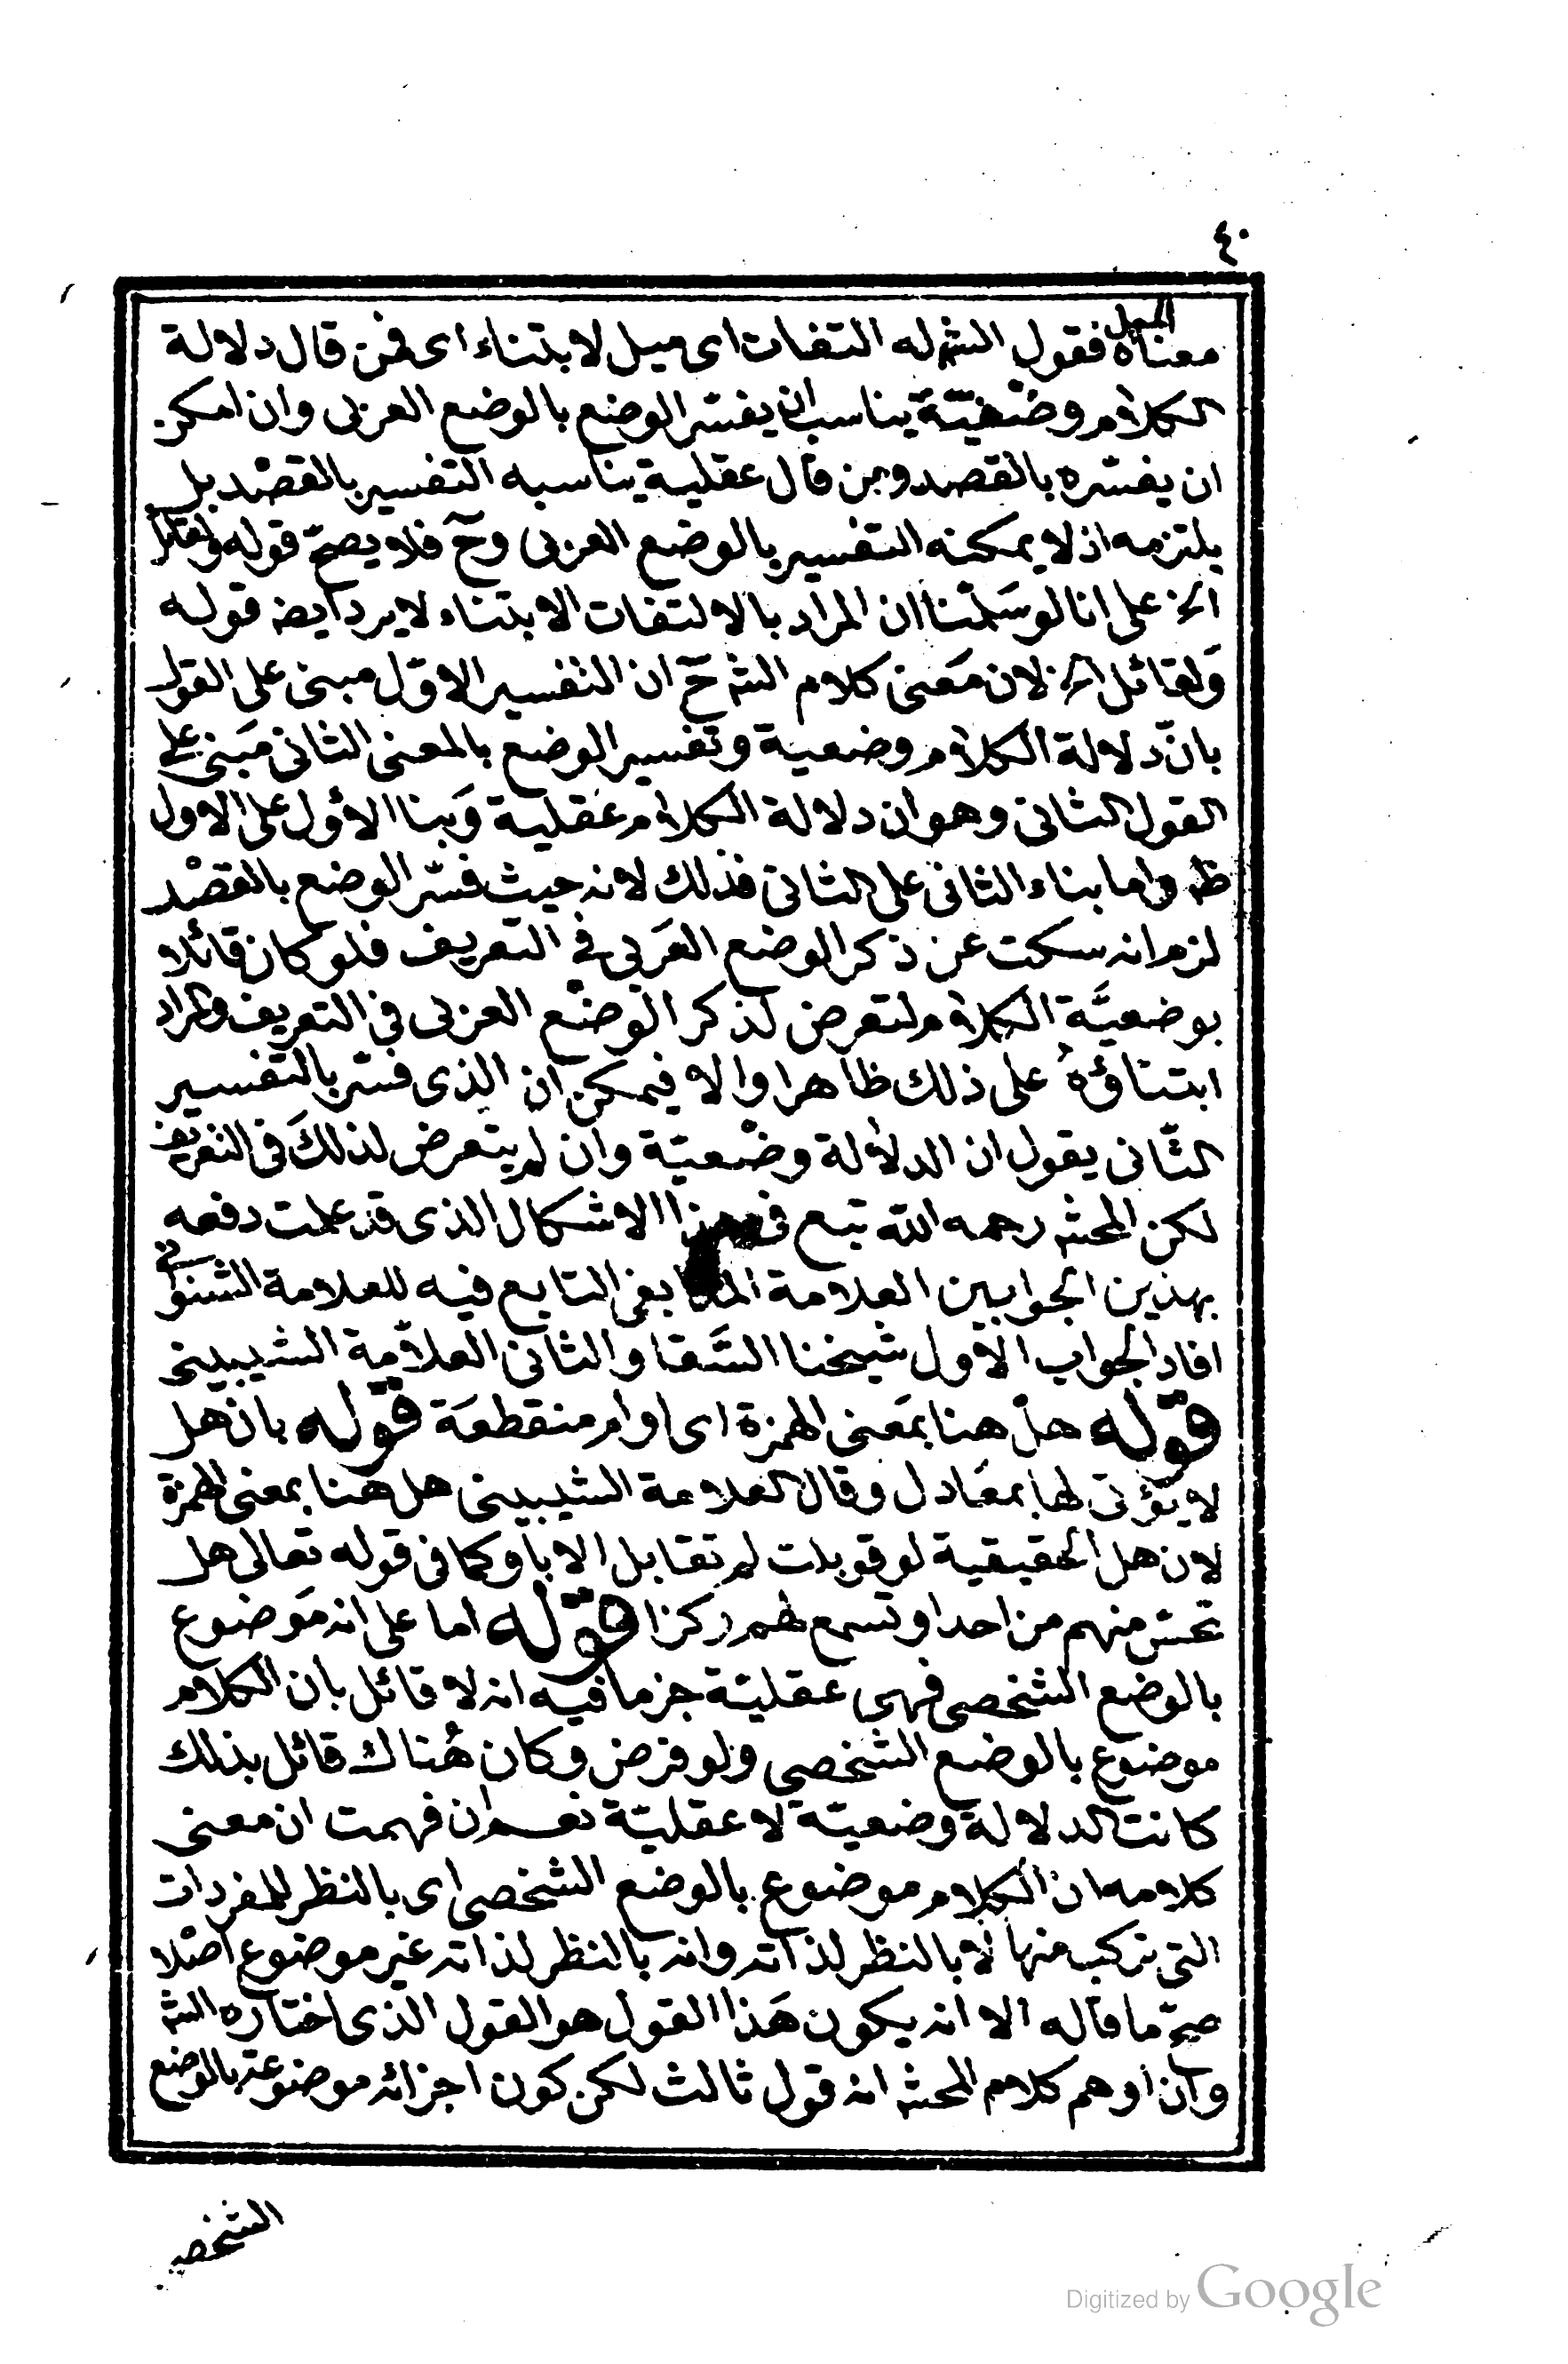 ٤٠
معناه الميل فقول الشه له التفات اى ميل لا بتناء اى فمن قال دلالة
الكلام وضعيّة يناسب ان يفسّر الوضع بالوضع العربى وان امكن
ان يفسّره بالقصد ومن قال عقلية يناسبه التفسير بالقصْد بل
يلتزمه اذ لا يمكنه التفسير بالوضع العربى وحَ فلا يصحّ قوله ولقائل
الخ على انا لو سَلّمنا ان المراد بالالتفات الابتناء لا يرد ايضه قوله
وَلقائل الخ لان مَعنى كلام الشه حَ ان التفسير الاوّل مبنى على القول
بانّ دلالة الكلام وضعية وتفسير الوضع بالمعنى الثانى مَبنى على
القول الثانى وهو ان دلالة الكلام عَقلية وَبنا الاوّل على الاول
ظه واما بناء الثانى على الثانى فذلك لانه حيث فسّر الوضع بالقصْد
لزم انه سكت عن ذكر الوضع العَربى فى التعريف فلو كان قائلا
بوضعيَّة الكلام لتعرض لذكر الوضْع العربى فى التعريف والمراد
ابتناؤهُ على ذلك ظاهرا والا فيمكن ان الذى فسّر بالتفسير
الثّانى يقول ان الدلالة وضْعيّة وان لم يتعرض لذلكَ فى التعريف
لكن المحشه رحمه الله تبع فى هذا الاشكال الذى قد علمت دفعه
بهذين الجوابين العلامة المدابغى التابع فيه للعلامة الشنوانى
افاد الجواب الاول شيخنا السَّقا والثانى العلاّمة الشيبينى
قوّله هلْ هنا بمَعنى الهمزة اى او ام منقطعَة قوّله بان هل
لا يؤتى لها بمعَادل وقال العلامة الشيبينى هل هنا بمعنى الهمزة
لان هل الحقيقية لو قوبلت لم تقابل الا باو كما فى قوله تعالى هل
تحسّ منهم من احد او تسمع لهم ركزا قوّله اما على انه مَوضوع
بالوضع الشخصى فهى عقليّة جزما فيه انه لا قائل بان الكلام
موضوع بالوضع الشخصى ولو فرض وكان هُناك قائل بذلك
كانت الدلالة وضعيّة لا عقليّة نعم ان فهمت ان معنى
كلامه ان الكلام موضوع بالوضع الشخصى اى بالنظر للمفردات
التى تركب منها لا بالنظر لذاته وانه بالنظر لذاته غير موضوع اصْلا
صحّ ما قاله الا انه يكون هَذا القول هو القول الذى اختاره الشه
وان اوهم كلام المحشه انه قول ثالث لكن كون اجزائه موضوعة بالوضع
الشخصى
Digitized by Google